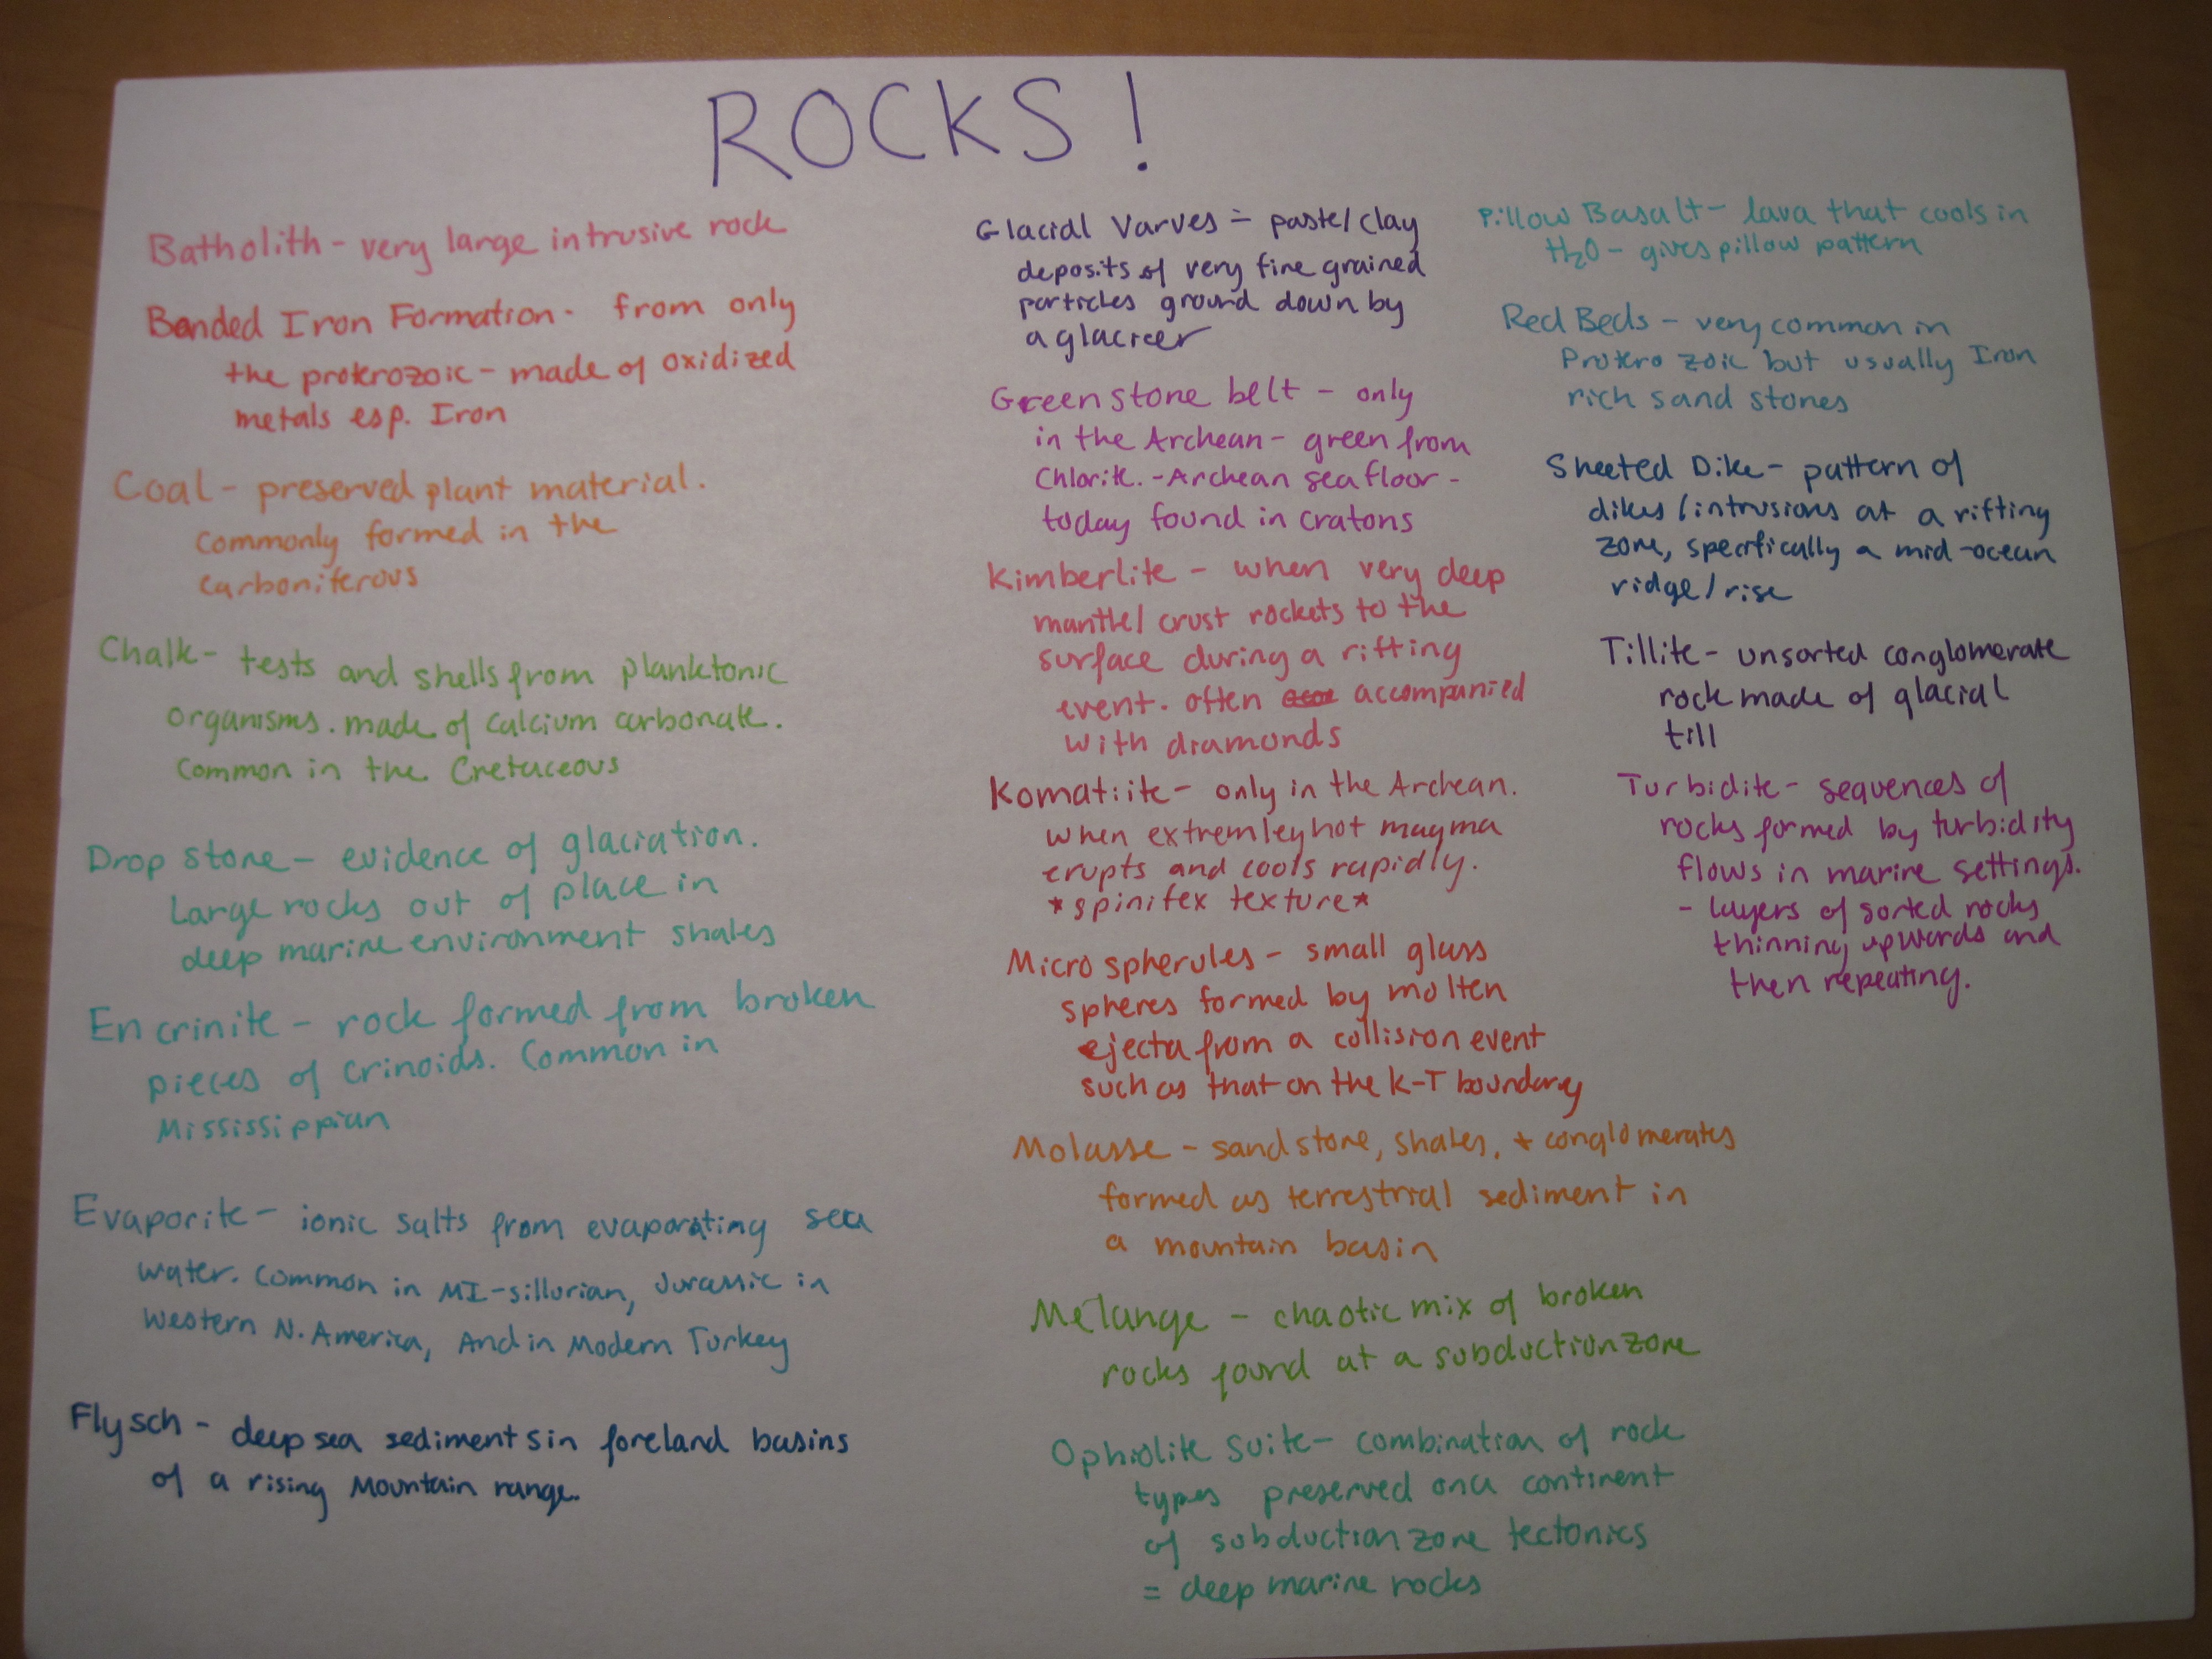 ROCKS!
Batholith - very large intrusive rock
Banded Iron Formation - from only
the proterozoic - made of oxidized
metals esp. Iron
Coal - preserved plant material.
commonly formed in the
carboniferous
Chalk - tests and shells from planktonic
organisms. made of calcium carbonate.
Common in the Cretaceous
Drop stone - evidence of glaciation.
Large rocks out of place in
deep marine environment shales
Encrinite - rock formed from broken
pieces of crinoids. Common in
Mississippian
Evaporite - ionic salts from evaporating sea
water. Common in MI-sillurian, Jurassic in
Western N. America, And in Modern Turkey
Flysch - deep sea sediments in foreland basins
of a rising Mountain range.
Glacial Varves - paste/clay
deposits of very fine grained
particles ground down by
a glacieer
Greenstone belt - only
in the Archean - green from
Chlorite. - Archean sea floor -
today found in cratons
Kimberlite - when very deep
mantle/crust rockets to the
surface during a rifting
event. often accompanied
with diamonds
Komatiite - only in the Archean.
when extremley hot magma
erupts and cools rapidly.
*spinifex texture*
Micro spherules - small glass
spheres formed by molten
ejecta from a collision event
such as that on the K-T boundary
Molasse - sand stone, shales, + conglomerates
formed as terrestrial sediment in
a mountain basin
Mélange - chaotic mix of broken
rocks found at a subduction zone
Ophiolite Suite - combination of rock
types preserved on a continent
of subduction zone tectonics
= deep marine rocks
Pillow Basalt - lava that cools in
H₂O - gives pillow pattern
Red Beds - very common in
Proterozoic but usually Iron
rich sand stones
Sheeted Dike - pattern of
dikes/intrusions at a rifting
zone, specifically a mid-ocean
ridge/rise
Tillite - unsorted conglomerate
rock made of glacial
till
Turbidite - sequences of
rocks formed by turbidity
flows in marine settings.
- layers of sorted rocks
thinning upwards and
then repeating.